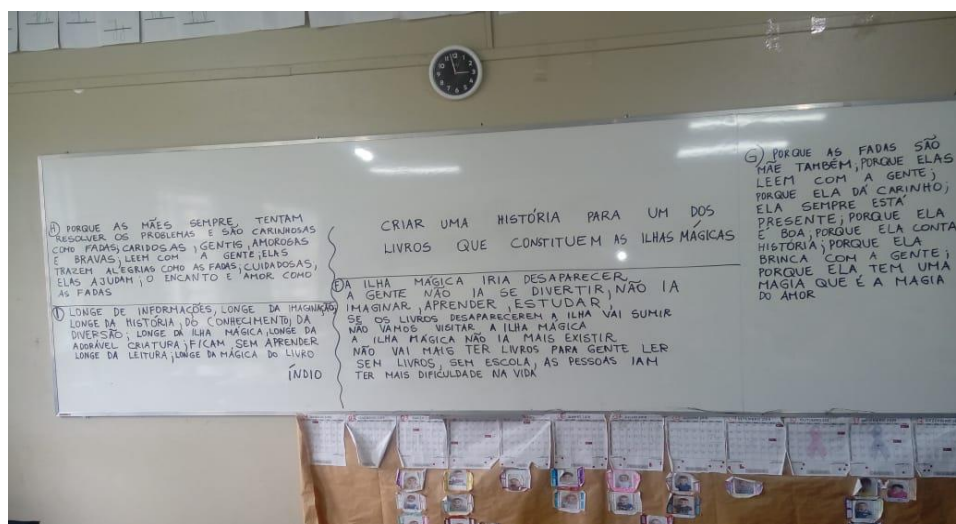 H) PORQUE AS MÃES SEMPRE, TENTAM
RESOLVER OS PROBLEMAS E SÃO CARINHOSAS
COMO FADAS, CARIDOSAS, GENTIS, AMOROSAS
E BRAVAS; LEEM COM A GENTE; ELAS
TRAZEM ALEGRIAS COMO AS FADAS; CUIDADOSAS,
ELAS AJUDAM; O ENCANTO E AMOR COMO
AS FADAS
LONGE DE INFORMAÇÕES, LONGE DA IMAGINAÇÃO
LONGE DA HISTÓRIA, DO CONHECIMENTO; DA
DIVERSÃO; LONGE DA ILHA MÁGICA; LONGE DA
ADORÁVEL CRIATURA; FICAM SEM APRENDER
LONGE DA LEITURA; LONGE DA MÁGICA DO LIVRO
ÍNDIO
CRIAR UMA HISTÓRIA PARA UM DOS
LIVROS QUE CONSTITUEM AS ILHAS MÁGICAS
E) A ILHA MÁGICA IRIA DESAPARECER,
A GENTE NÃO IA SE DIVERTIR, NÃO IA
IMAGINAR, APRENDER, ESTUDAR,
SE OS LIVROS DESAPARECEREM A ILHA VAI SUMIR
NÃO VAMOS VISITAR A ILHA MÁGICA
A ILHA MÁGICA NÃO IA MAIS EXISTIR
NÃO VAI MAIS TER LIVROS PARA GENTE LER
SEM LIVROS, SEM ESCOLA, AS PESSOAS IAM
TER MAIS DIFICULDADE NA VIDA
G) PORQUE AS FADAS SÃO
MÃE TAMBÉM; PORQUE ELAS
LEEM COM A GENTE;
PORQUE ELA DÁ CARINHO;
ELA SEMPRE ESTÁ
PRESENTE; PORQUE ELA
É BOA; PORQUE ELA CONTA
HISTÓRIA; PORQUE ELA
BRINCA COM A GENTE;
PORQUE ELA TEM UMA
MAGIA QUE É A MAGIA
DO AMOR